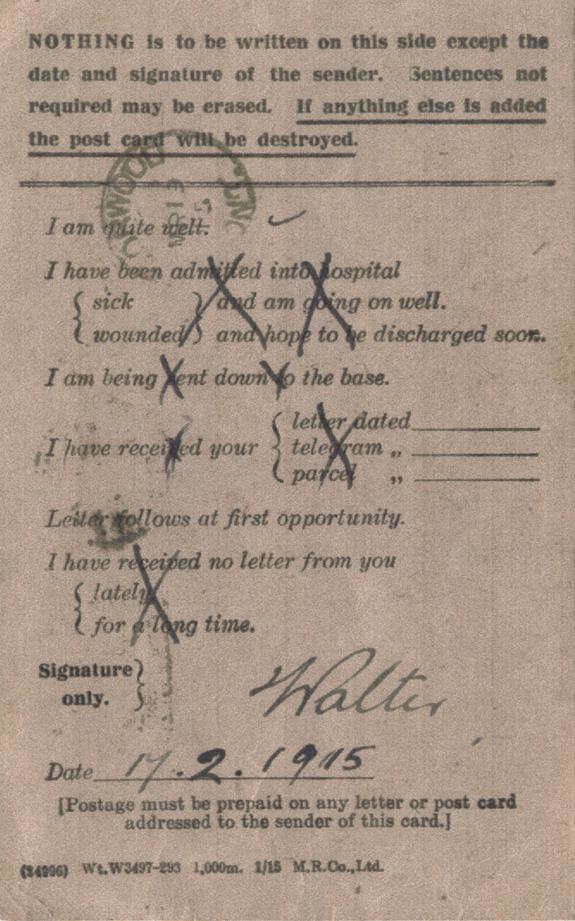 NOTHING is to be written on this side except the
date and signature of the sender. Sentences not
required may be erased. If anything else is added
the post card will be destroyed.
I am quite well.
I have been admitted into hospital
{ sick } and am going on well.
{ wounded } and hope to be discharged soon.
I am being sent down to the base.
letter dated
I have received your { telegram „
parcel „
Letter follows at first opportunity.
I have received no letter from you
{ lately
{ for a long time.
Signature }
only. }
Walter
Date 17.2.1915
[Postage must be prepaid on any letter or post card
addressed to the sender of this card.]
(24996) Wt.W3497-293 1,000m. 1/15 M.R.Co.,Ltd.